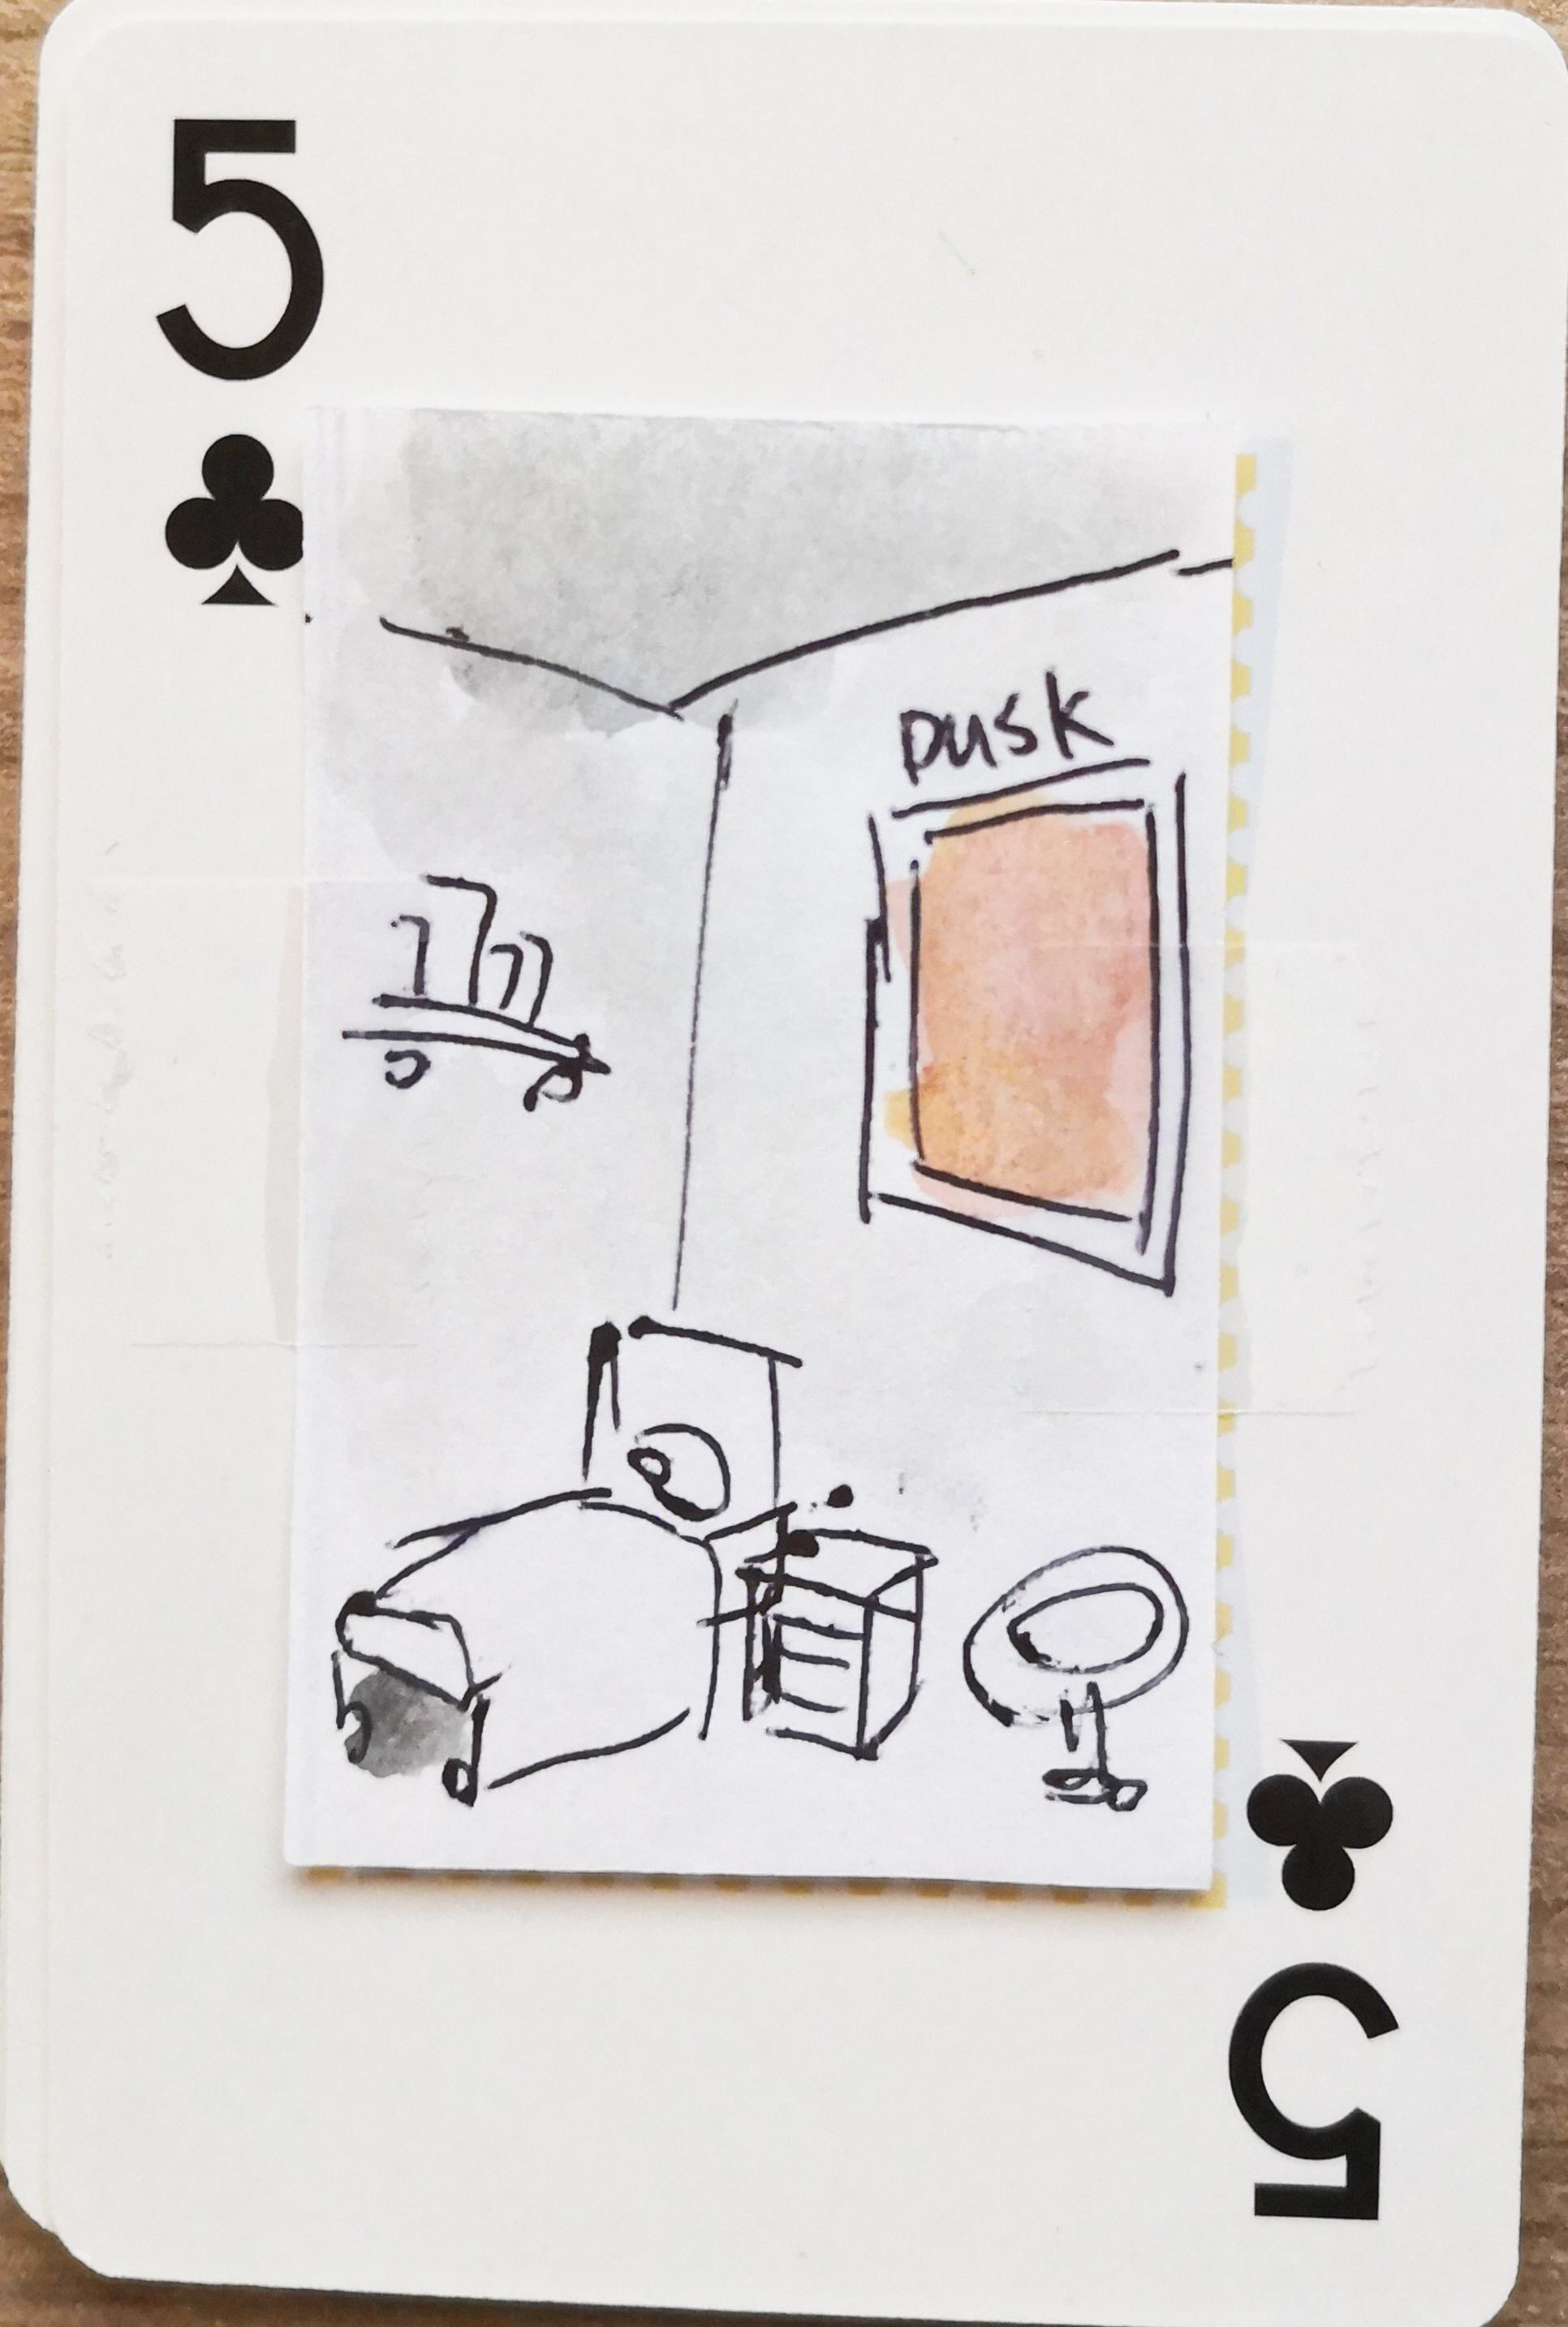 5
DUSK
5